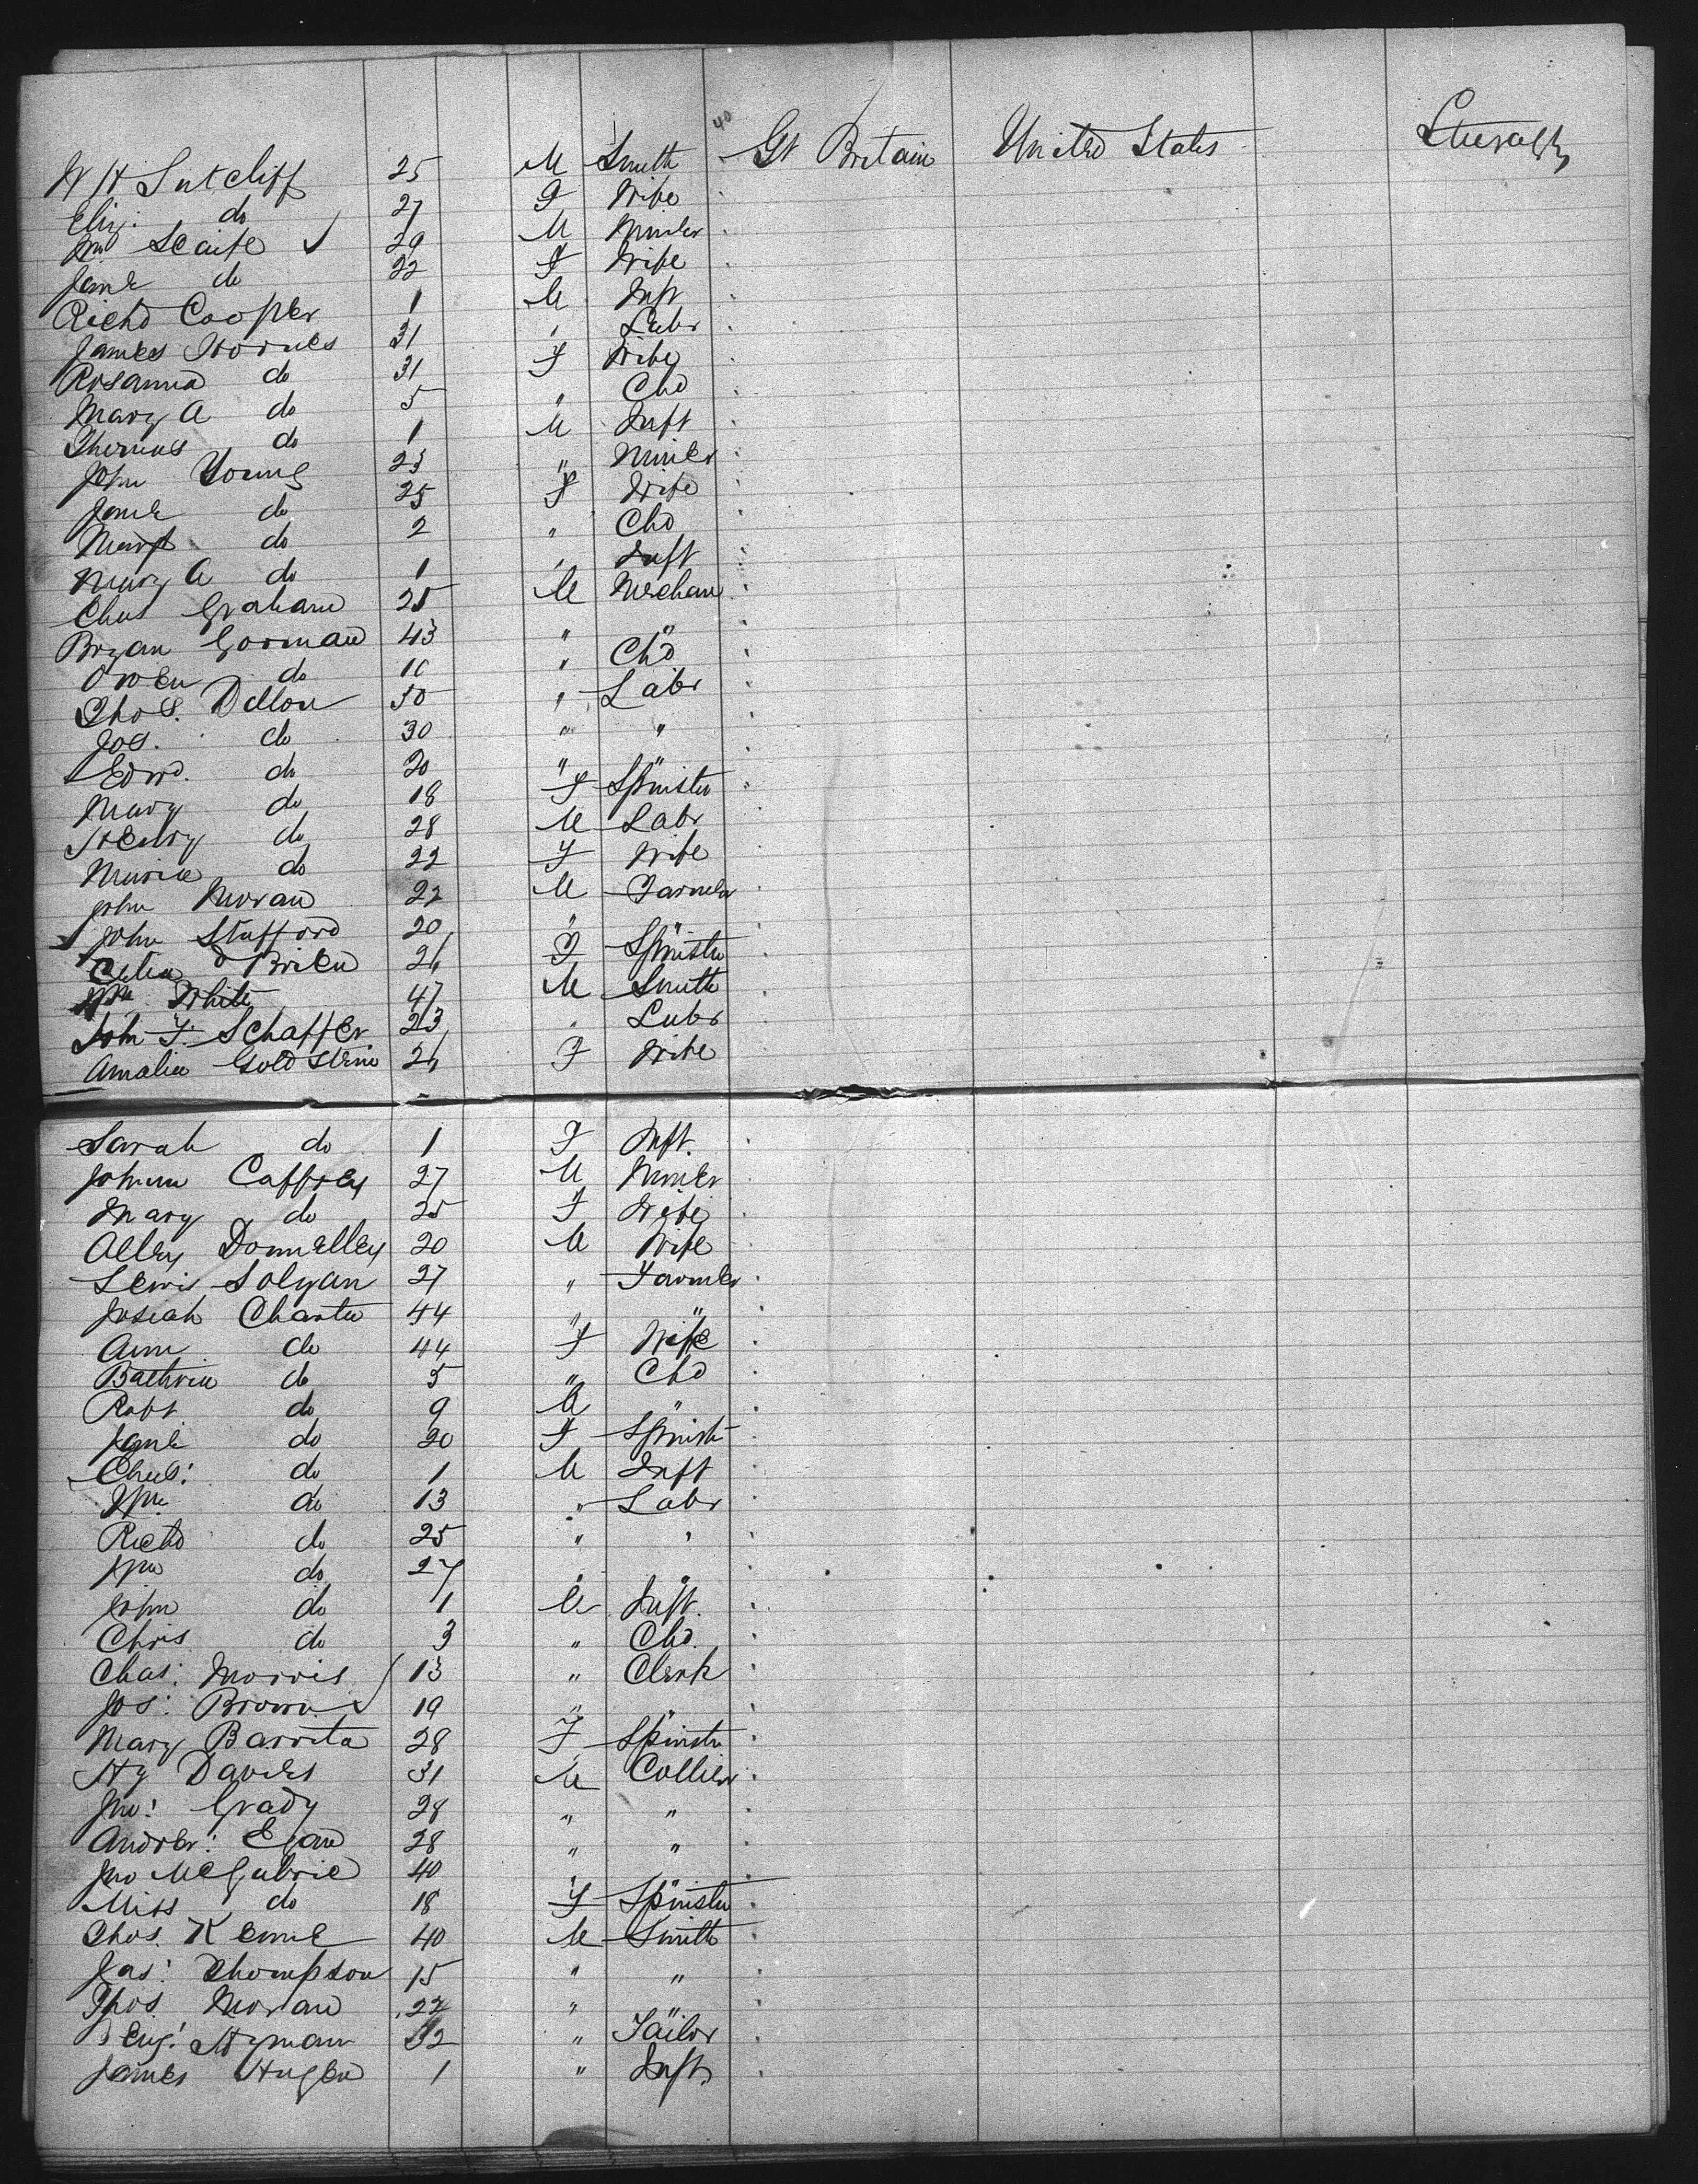 40
W H Sutcliff 25 M Smith Gt Britain United States Steerage
Eliz: do 27 F Wife
Jno Scaife ✓ 29 M Miner
Jane do 22 F Wife
Richd Cooper 1 M Inft
James Hornes 31 " Labr
Rosanna do 31 F Wife
Mary A do 5 " Chd
Thomas do 1 M Inft
John Young 23 " Miner
Jane do 25 F Wife
Margt do 2 " Chd
Mary A do 1 " Inft
Chas Graham 25 M Mechan
Bryan Gorman 43 " "
Owen do 10 " Chd
Thos. Dillon 50 " Labr
Jos. do 30 " "
Edwd. do 20 " "
Mary do 18 F Spinster
Henry do 28 M Labr
Maria do 22 F Wife
John Moran 22 M Farmer
John Stafford 20 " "
Celia O Brien 21 F Spinster
Wm White 47 M Smith
John F. Schaffer 23 " Labr
Amalia Goldstein 21 F Wife
Sarah do 1 F Inft.
Johnn Caffrey 27 M Miner
Mary do 25 F Wife
Alley Donnelley 20 M Wife
Lewis Solyan 27 " Farmer
Josiah Charter 44 " "
Ann do 44 F Wife
do 5 " Chd
Robt do 9 M "
Jane do 20 F Spinstr
Chas: do 1 M Inft
Wm do 13 " Labr
Richd do 25 " "
Wm do 27 " "
John do 1 M Inft.
Chris do 3 " Chd.
Chas: Morris ✓ 13 " Clerk
Jos: Brown ✓ 19 " "
Mary Barrita 28 F Spinstr
Hy Davies 31 M Collier
Jno: Grady 28 " "
Andrew: Egan 28 " "
Jno McGubrie 40 " "
Miss do 18 F Spinster
Thos. Kenne 40 M Smith
Jas: Thompson 15 " "
Thos Moran 22 " "
Benj: Hyman 32 " Tailor
James Hugen 1 " Inft.